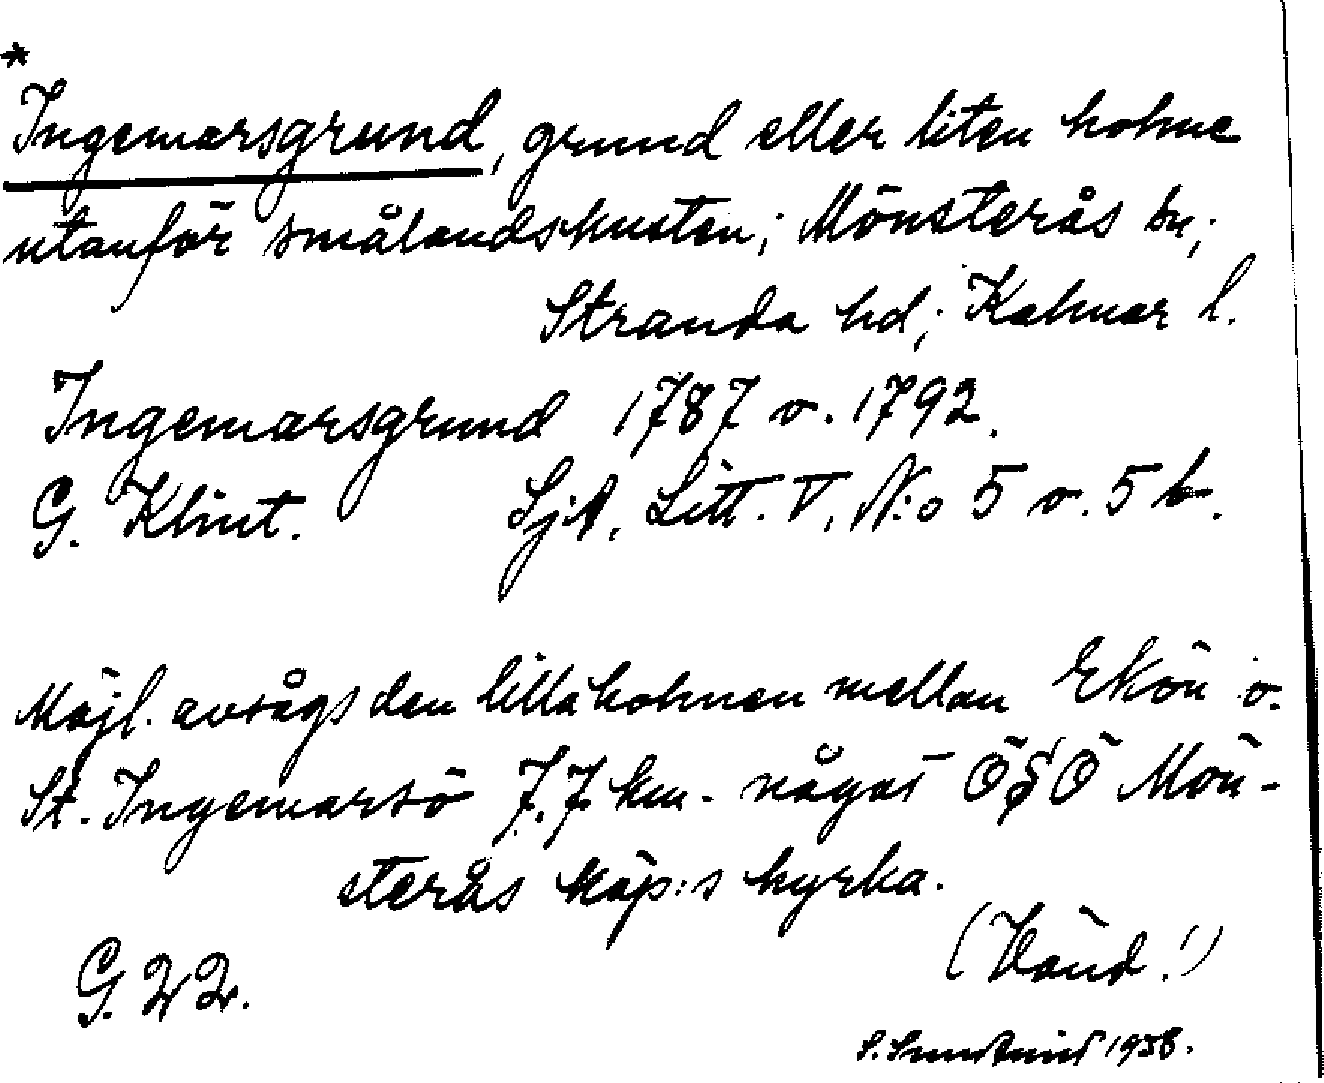 *
Ingemarsgrund, grund eller liten holme
utanför smålandskusten; Mönsterås sn;
Stranda hd; Kalmar l.
Ingemarsgrund 1787 o. 1792.
G. Klint. SjA, Litt. V, N:o 5 o. 5 b.
Möjl. avsågs den lilla holmen mellan Ekön o.
St. Ingemarsö 7.7 km. något ÖSÖ Mön-
sterås köp:s kyrka.
(Vänd!)
G. 22.
1938.